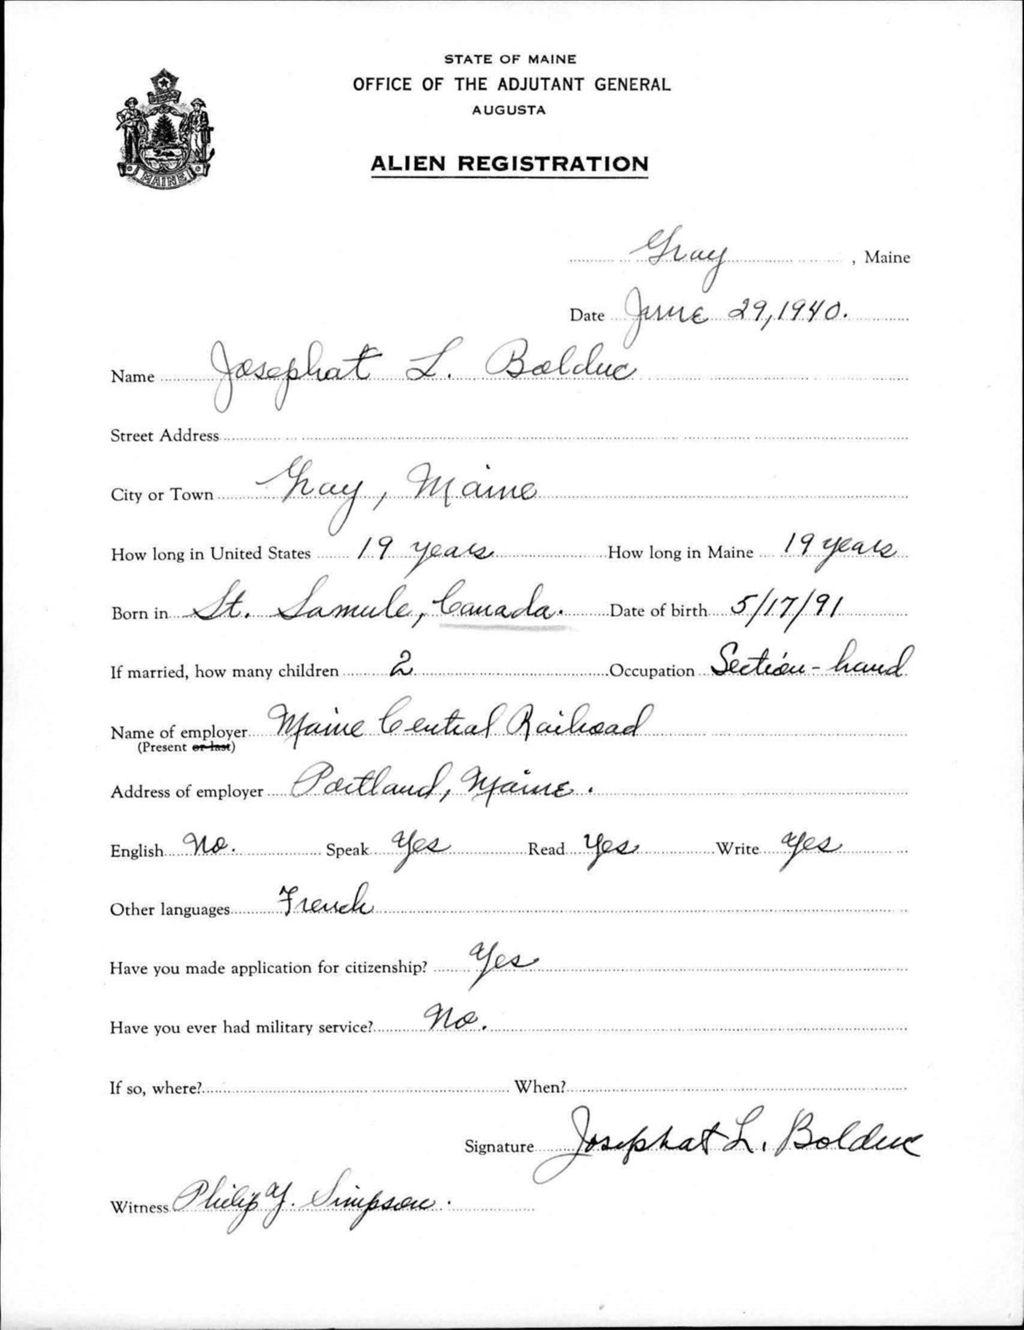 STATE OF MAINE
OFFICE OF THE ADJUTANT GENERAL
AUGUSTA
ALIEN REGISTRATION
MAINE
Gray, Maine
Date June 29, 1940.
Name Josephat L. Bolduc
Street Address
City or Town Gray, Maine
How long in United States 19 years How long in Maine 19 years
Born in St. Samule, Canada. Date of birth 5/17/91
If married, how many children 2 Occupation Section-hand
Name of employer Maine Central Railroad
(Present or last)
Address of employer Portland, Maine.
English No. Speak Yes Read Yes Write Yes
Other languages French
Have you made application for citizenship? Yes
Have you ever had military service? No.
If so, where? When?
Signature Josephat L. Bolduc
Witness Philip Y. Simpson.